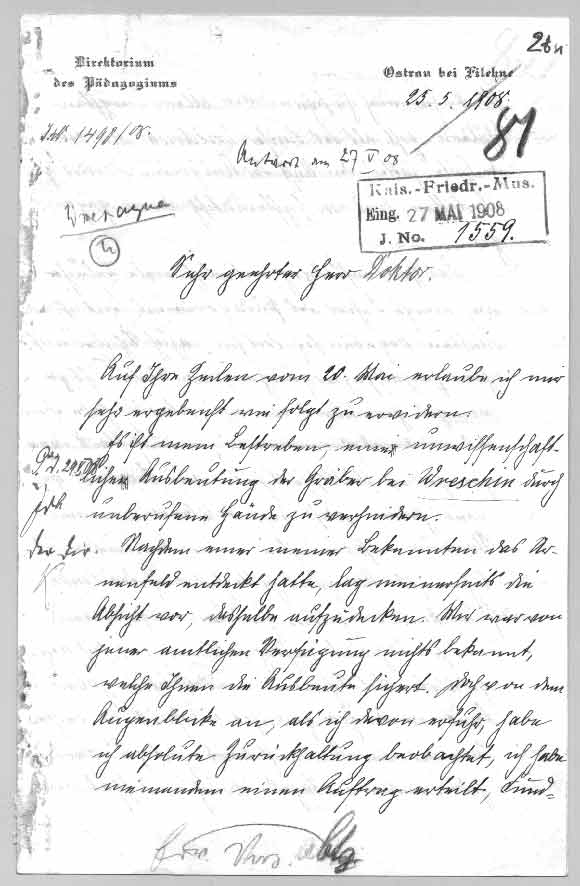 Direktorium
des Pädagogiums
Ostrau bei Filehne
25. 5. 1908.
1498/08.
81
Antwort am 27 V 08
Kais.-Friedr.-Mus.
Eing. 27 MAI 1908
J. No. 1559.
Sehr geehrter Herr Doktor.
Auf Ihre Zeilen vom 20. Mai erlaube ich mir
sehr ergebenst wie folgt zu erwidern:
Es ist mein Bestreben, eine unwissenschaft-
liche Ausbeutung der Gräber bei Wreschin durch
unberufene Hände zu verhindern.
Der Dir.
Nachdem einer meiner Bekannten das Ur-
nenfeld entdeckt hatte, lag meinerseits die
Absicht vor, dasselbe aufzudecken. Mir war von
jener amtlichen Verfügung nichts bekannt,
welche Ihnen die Ausbeute sichert. Doch von dem
Augenblicke an, als ich davon erfuhr, habe
ich absolute Zurückhaltung beobachtet, ich habe
niemandem einen Auftrag erteilt, Fund-